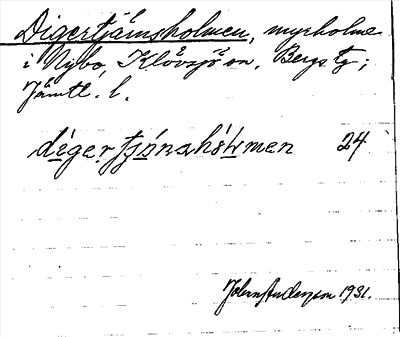 Digertjärnsholmen, myrholme
i Nybo, Klövsjö sn, Bergs tg;
Jämtl. l.
24
Johan Anderzon 1931.